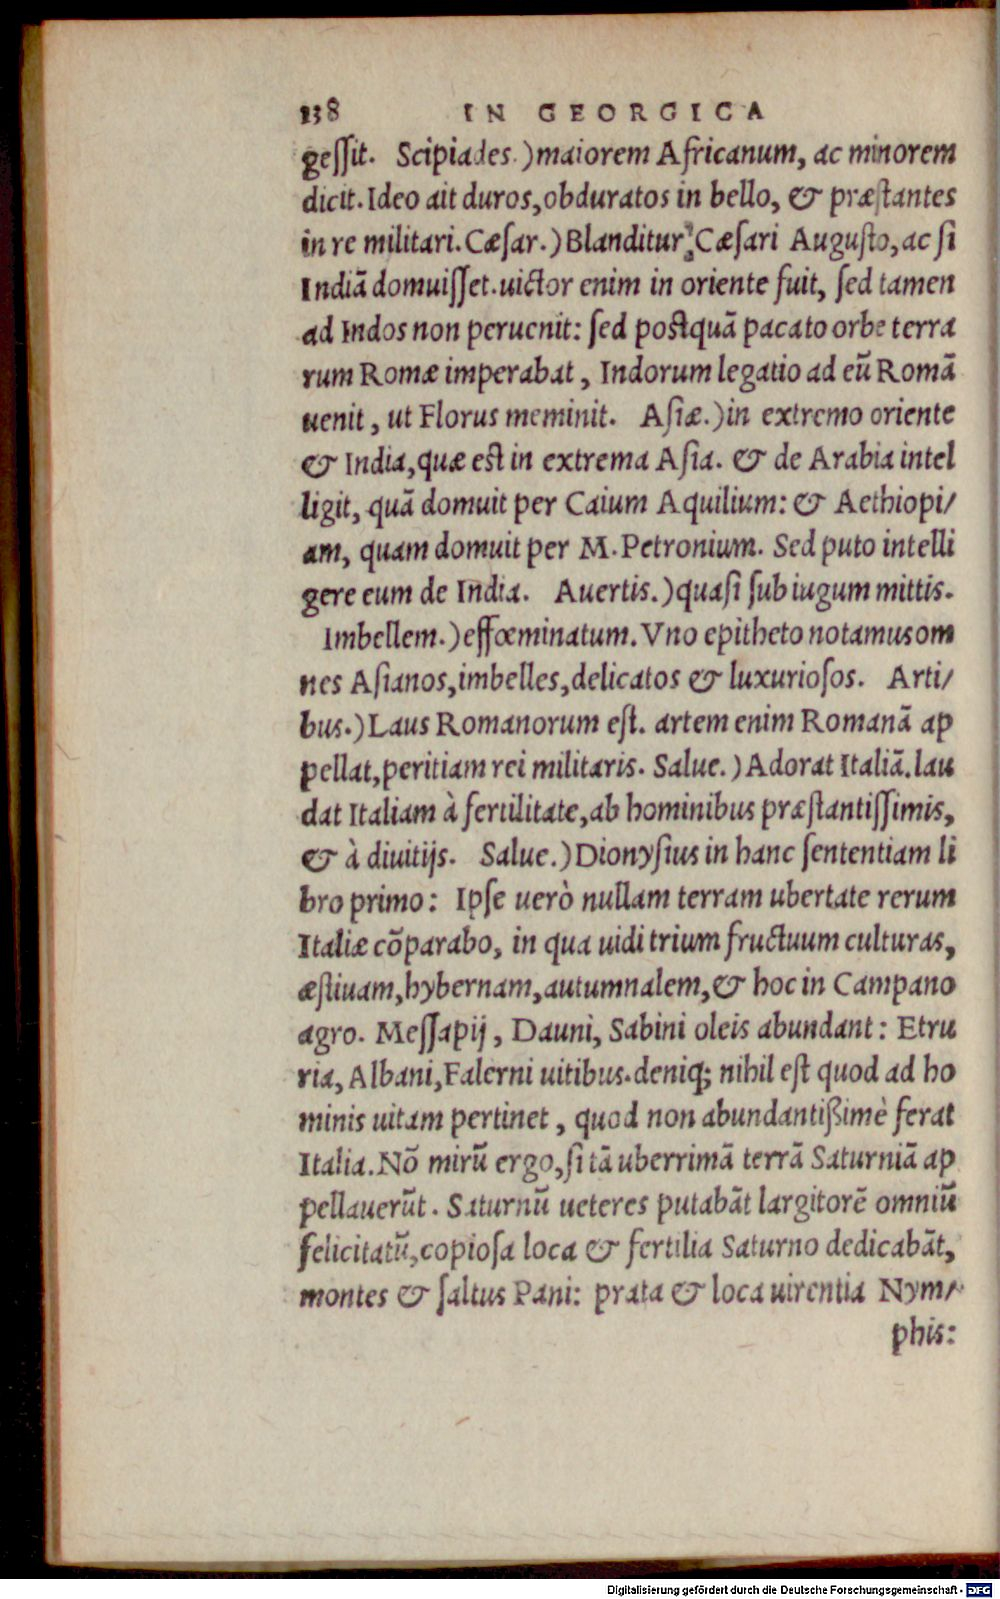 138 IN GEORGICA
geſſit. Scipiades.)maiorem Africanum, ac minorem
dicit. Ideo ait duros, obduratos in bello, & præſtantes
in re militari. Cæſar.) Blanditur Cæſari Auguſto, ac ſi
Indiā domuiſſet. uictor enim in oriente fuit, ſed tamen
ad Indos non peruenit: ſed poſtquā pacato orbe terra
rum Romæ imperabat, Indorum legatio ad eū Romā
uenit, ut Florus meminit. Aſiæ.)in extremo oriente
& India, quæ eſt in extrema Aſia. & de Arabia intel
ligit, quā domuit per Caium Aquilium: & Aethiopi/
am, quam domuit per M. Petronium. Sed puto intelli
gere eum de India. Auertis.)quaſi ſub iugum mittis.
Imbellem.)effœminatum. Vno epitheto notamus om
nes Aſianos, imbelles, delicatos & luxurioſos. Arti/
bus.)Laus Romanorum eſt. artem enim Romanā ap
pellat, peritiam rei militaris. Salue.)Adorat Italiā. lau
dat Italiam à fertilitate, ab hominibus præſtantiſſimis,
& à diuitijs. Salue.)Dionyſius in hanc ſententiam li
bro primo: Ipſe uerò nullam terram ubertate rerum
Italiæ cōparabo, in qua uidi trium fructuum culturas,
æſtiuam, hybernam, autumnalem, & hoc in Campano
agro. Meſſapij, Dauni, Sabini oleis abundant: Etru
ria, Albani, Falerni uitibus. deniq; nihil eſt quod ad ho
minis uitam pertinet, quod non abundantißimè ferat
Italia. Nō mirū ergo, ſi tā uberrimā terrā Saturniā ap
pellauerūt. Saturnū ueteres putabāt largitorē omniū
felicitatū, copioſa loca & fertilia Saturno dedicabāt,
montes & ſaltus Pani: prata & loca uirentia Nym/
phis:
Digitalisierung gefördert durch die Deutsche Forschungsgemeinschaft - DFG